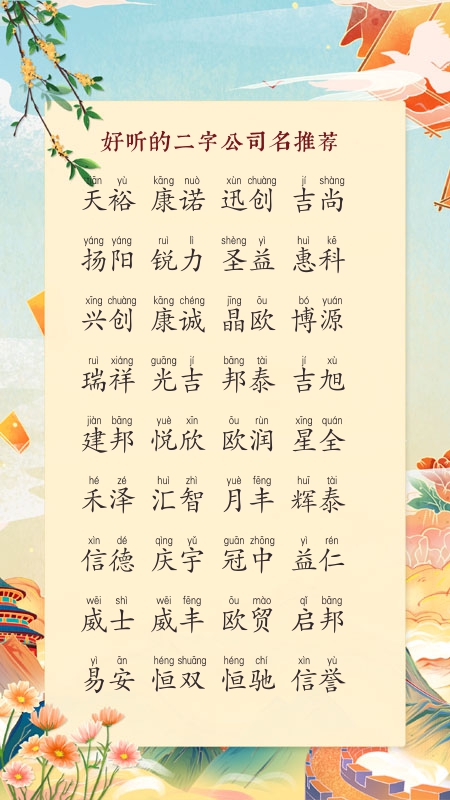 好听的二字公司名推荐
tiān yù kāng nuò xùn chuàng jí shàng
天裕 康诺 迅创 吉尚
yáng yáng ruì lì shèng yì huì kē
扬阳 锐力 圣益 惠科
xīng chuàng kāng chéng jīng ōu bó yuán
兴创 康诚 晶欧 博源
ruì xiáng guāng jí bāng tài jí xù
瑞祥 光吉 邦泰 吉旭
jiàn bāng yuè xīn ōu rùn xīng quán
建邦 悦欣 欧润 星全
hé zé huì zhì yuè fēng huī tài
禾泽 汇智 月丰 辉泰
xìn dé qìng yǔ guān zhōng yì rén
信德 庆宇 冠中 益仁
wēi shì wēi fēng ōu mào qǐ bāng
威士 威丰 欧贸 启邦
yì ān héng shuāng héng chí xìn yù
易安 恒双 恒驰 信誉